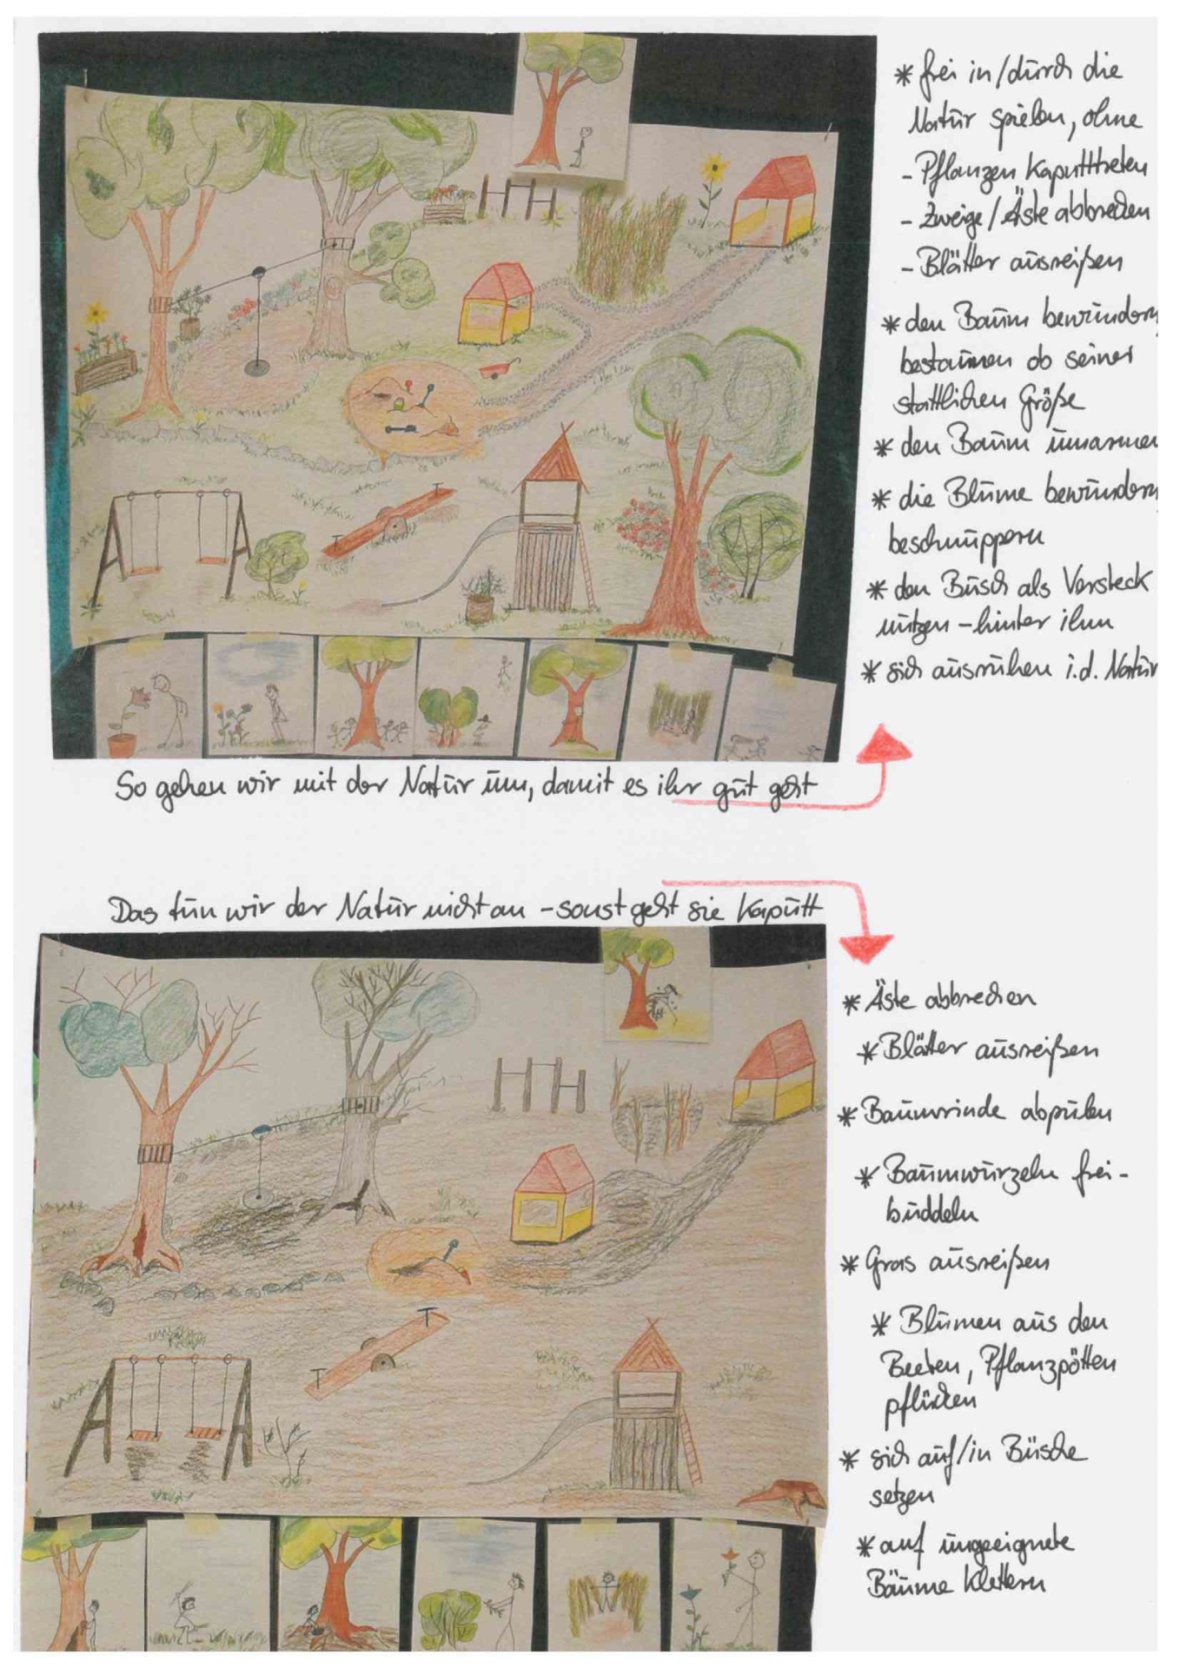 * frei in/durch die
Natur spielen, ohne
- Pflanzen kaputttreten
- Zweige/Äste abbrechen
- Blätter ausreißen
* den Baum bewundern,
bestaunen ob seiner
stattlichen Größe
* den Baum umarmen
* die Blume bewundern,
beschnuppern
* den Busch als Versteck
nutzen - hinter ihm
* sich ausruhen i.d. Natur
So gehen wir mit der Natur um, damit es ihr gut geht
Das tun wir der Natur nicht an - sonst geht sie kaputt
* Äste abbrechen
* Blätter ausreißen
* Baumrinde abpulen
* Baumwurzeln frei-
buddeln
* Gras ausreißen
* Blumen aus den
Beeten, Pflanzpötten
pflücken
* sich auf/in Büsche
setzen
* auf ungeeignete
Bäume klettern